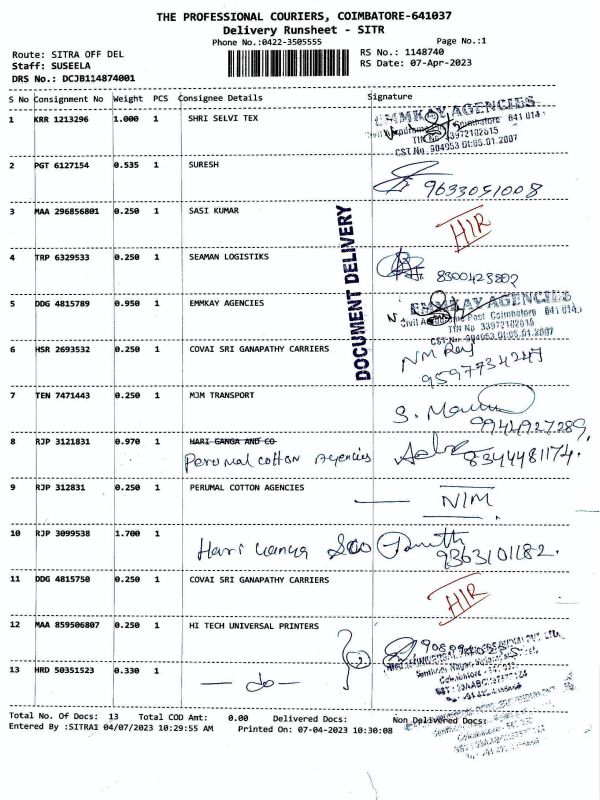 THE PROFESSIONAL COURIERS, COIMBATORE-641037
Delivery Runsheet - SITR
Phone No.:0422-3505555 Page No.:1
Route: SITRA OFF DEL RS No.: 1148740
Staff: SUSEELA RS Date: 07-Apr-2023
DRS No.: DCJB114874001
S No Consignment No Weight PCS Consignee Details Signature
1 KRR 1213296 1.000 1 SHRI SELVI TEX
EMMKAY AGENCIES
Coimbatore 641 014
TIN No 33972102615
CST No. 904953 Dt:05.01.2007
2 PGT 6127154 0.535 1 SURESH 9633051008
3 MAA 296856801 0.250 1 SASI KUMAR HIR
DOCUMENT DELIVERY
4 TRP 6329533 0.250 1 SEAMAN LOGISTIKS
5 DDG 4815789 0.950 1 EMMKAY AGENCIES
EMMKAY AGENCIES
Post Coimbatore 641 014
TIN No 33972102615
CST No. 904953 Dt:05.01.2007
6 HSR 2693532 0.250 1 COVAI SRI GANAPATHY CARRIERS
9597734247
7 TEN 7471443 0.250 1 MJM TRANSPORT
9944927289
8 RJP 3121831 0.970 1 HARI GANGA AND CO
Perumal cotton Agencies 8344481174.
9 RJP 312831 0.250 1 PERUMAL COTTON AGENCIES — NIM
10 RJP 3099538 1.700 1
9363101182.
11 DDG 4815750 0.250 1 COVAI SRI GANAPATHY CARRIERS HIR
12 MAA 859506807 0.250 1 HI TECH UNIVERSAL PRINTERS
13 HRD 50351523 0.330 1 — do —
Total No. Of Docs: 13 Total COD Amt: 0.00 Delivered Docs: Non Delivered Docs:
Entered By :SITRA1 04/07/2023 10:29:55 AM Printed On: 07-04-2023 10:30:08